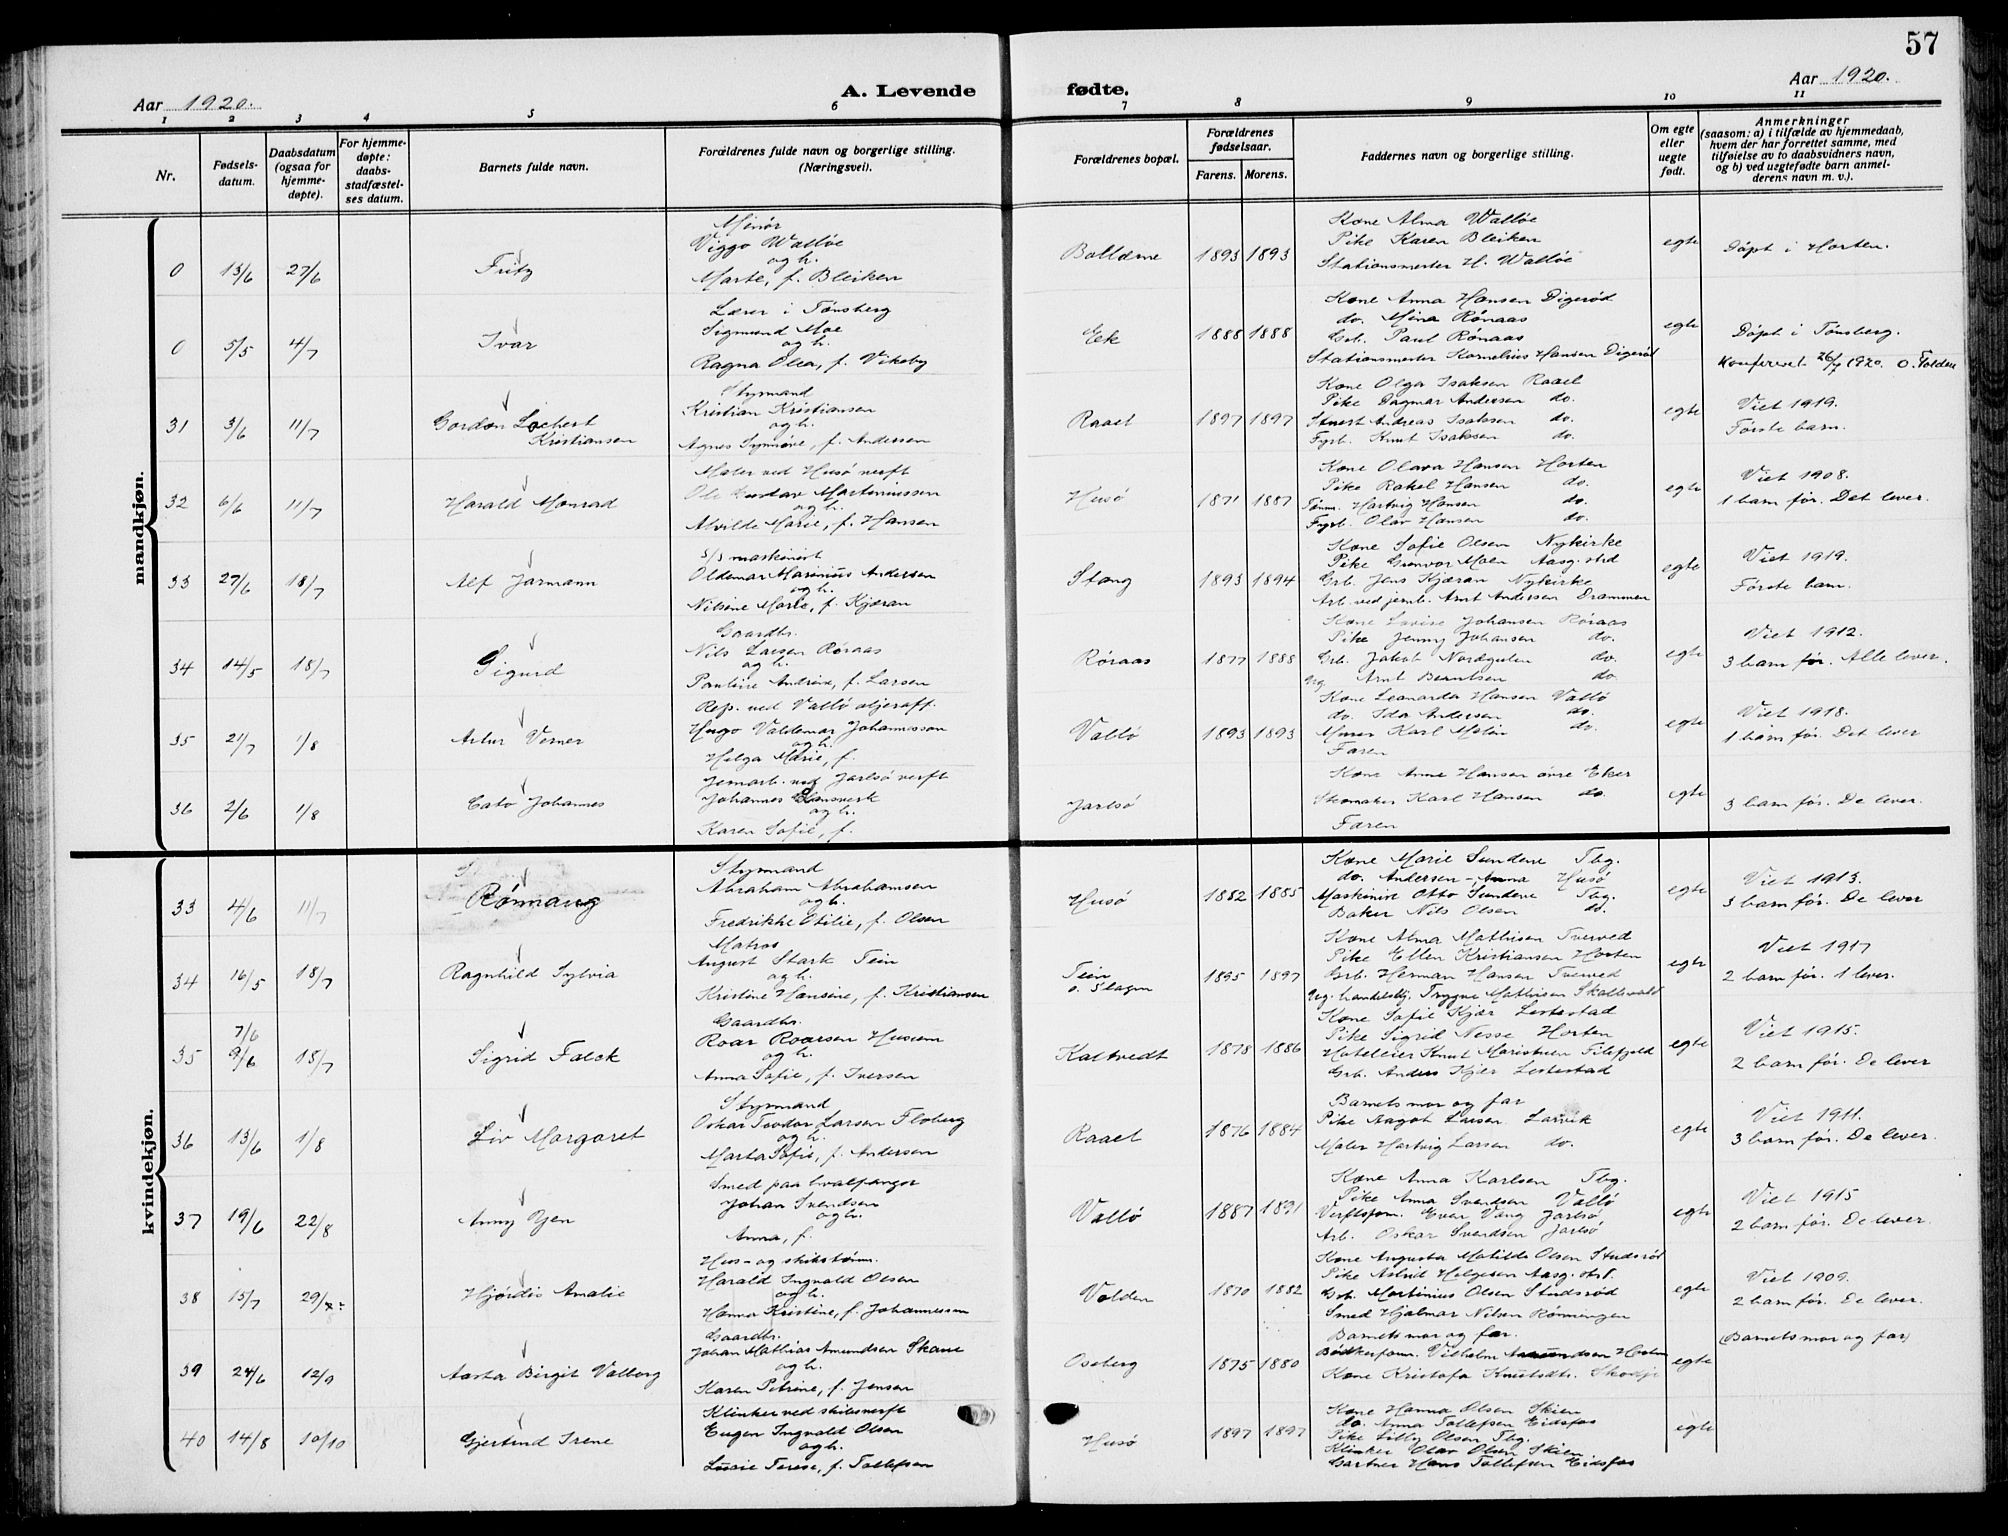 57
Aar 1920.
A. Levende
fødte.
Aar 1920.
1 2 3 4 5 6 7 8 9 10 11
Nr.
Fødsels-
datum.
Daabsdatum
(ogsaa for
hjemme-
døpte).
For hjemme-
døpte:
daabs-
stadfæstel-
ses datum.
Barnets fulde navn.
Forældrenes fulde navn og borgerlige stilling.
(Næringsvei).
Forældrenes bopæl.
Forældrenes
fødselsaar.
Farens. Morens.
Faddernes navn og borgerlige stilling.
Om egte
eller
uegte
født.
Anmerkninger
(saasom: a) i tilfælde av hjemmedaab,
hvem der har forrettet samme, med
tilføielse av to daabsvidners navn,
og b) ved uegtefødte barn anmel-
derens navn m. v.).
mandkjøn.
0 13/6 27/6 Fritz
Minør
Viggo Walløe
og h.
Marte, f. Bleiken
Bolærne 1893 1893
Kone Alma Walløe
Pike Karen Bleiken
Stationsmester H. Walløe
egte
Døpt i Horten.
0 5/5 4/7 Ivar
Lærer i Tønsberg
Sigmund Moe
og h.
Ragna Olea, f. Vikeby
Eek 1888 1888
Kone Anna Hansen Digerød
do. Mina Rønaas
Grb. Paul Rønaas
Stationsmester Kornelius Hansen Digerød
egte
Døpt i Tønsberg.
Konferert 26/7 1920. O. Tolden
31 3/6 11/7 Gordon Lochert
Kristiansen
Styrmand
Kristian Kristiansen
og h.
Agnes Synnøve, f. Andersen
Raael 1897 1897
Kone Olga Isaksen Raael
Pike Dagmar Andersen do.
Stuert Andreas Isaksen do.
Fyrb. Knut Isaksen do.
egte
Viet 1919.
Første barn.
32 6/6 11/7 Harald Monrad
Maler ved Husø verft
Ole Gustav Martinuissen
og h.
Alvilde Marie, f. Hansen
Husø 1871 1887
Kone Olava Hansen Horten
Pike Rakel Hansen do.
Tømm. Hartvig Hansen do.
Fyrb. Olav Hansen do.
egte
Viet 1908.
1 barn før. Det lever.
33 27/6 18/7 Alf Jarmann
S/S maskinist
Oldemar Marinius Andersen
og h.
Nilsine Marie, f. Kjæran
Stang 1893 1894
Kone Sofie Olsen Nykirke
Pike Gunvor Moen Aasg.strd
Grb. Jens Kjæran Nykirke
Arb. ved jernb. Arnt Andersen Drammen
egte
Viet 1919.
Første barn.
34 14/5 18/7 Sigurd
Gaardbr.
Nils Larsen Røraas
og h.
Pauline Andrea, f. Larsen
Røraas 1877 1888
Kone Lovise Johansen Røraas
Pike Jenny Johansen do.
Grb. Jakob Nordgulen do.
Ug. Arnt Berntsen do.
egte
Viet 1912.
3 barn før. Alle lever.
35 21/7 1/8 Artur Verner
Rep. ved Vallø oljeraff.
Hugo Valdemar Johannisson
og h.
Helga Marie, f.
Vallø 1893 1893
Kone Leonarda Hansen Vallø
do. Ida Andersen do.
Murer Karl Malin do.
Faren
egte
Viet 1918.
1 barn før. Det lever
36 2/6 1/8 Cato Johannes
Jernarb. ved Jarlsø verft
Johannes
og h.
Karen Sofie, f.
Jarlsø
Kone Anne Hansen øvre Eker
Skomaker Karl Hansen do.
Faren
egte
3 barn før. De lever.
kvindekjøn.
33 4/6 11/7 Rønnaug
Styrmand
Abraham Abrahamsen
og h.
Fredrikke Otilie, f. Olsen
Husø 1882 1885
Kone Marie Sundene Tbg.
do. Andersen - Anna Husø
Maskinist Otto Sundene Tbg.
Baker Nils Olsen do.
egte
Viet 1913.
3 barn før. De lever
34 16/5 18/7 Ragnhild Sylvia
Matros
August Stark Tein
og h.
Kristine Hansine, f. Kristiansen
Tein
o. Slagen
1895 1897
Kone Alma Mathisen Tverved
Pike Ellen Kristiansen Horten
Grb. Herman Hansen Tverved
Ug. handelsbtj. Trygve Mathisen Skallevold
egte
Viet 1917
2 barn før. 1 lever.
35 7/6
9/6 18/7 Sigrid Falck
Gaardbr.
Roar Roarsen Husum
og h.
Anna Sofie, f. Iversen
Kaltvedt 1878 1886
Kone Sofie Kjær Lestestad
Pike Sigrid Nesse Horten
Hoteleier Knut Maristuen Filefjeld
Grb. Anders Kjær Lestestad
egte
Viet 1915.
2 barn før. De lever
36 13/6 1/8 Liv Margaret
Styrmand
Oskar Teodor Larsen Floberg
og h.
Marta Sofie, f. Andersen
Raael 1876 1884
Barnets mor og far
Pike Aagot Larsen Larvik
Maler Hartvig Larsen do.
egte
Viet 1911.
3 barn før. De lever.
37 19/6 22/8 Anny Yen
Smed paa hvalfanger
Johan Svendsen
og h.
Anna, f.
Vallø 1887 1891
Kone Anna Karlsen Tbg.
Pike Anna Svendsen Vallø
Verftsfom. Even Vang Jarlsø
Arb. Oskar Svendsen Jarlsø
egte
Viet 1915
2 barn før. De lever.
38 15/7 29/8 Hjørdis Amalie
Hus- og skibstømm.
Harald Ingvald Olsen
og h.
Hanna Kristine, f. Johannessen
Volden 1870 1882
Kone Augusta Matilde Olsen Studsrød
Pike Astrid Helgesen Aasg.strd.
Grb. Martinius Olsen Studsrød
Smed Hjalmar Nilsen Rønningen
egte
Viet 1909.
2 barn før. De lever.
39 24/6 12/9 Aasta Birgit Valborg
Gaardbr.
Johan Mathias Amundsen Skaue
og h.
Karen Petrine, f. Jensen
Oseberg 1875 1880
Barnets mor og far.
Bødkerfom. Vilhelm Amundsen Horten
Kone Kristofa Knutsdt.
egte
(Barnets mor og far)
40 14/8 10/10 Gjertrud Irene
Klinker ved skibsverft
Eugen Ingvald Olsen
og h.
Lucie Terese, f. Tollefsen
Husø 1897 1897
Kone Hanna Olsen Skien
do. Anna Tollefsen Eidsfos
Pike Lilly Olsen Tbg.
Klinker Olav Olsen Skien
Gartner Hans Tollefsen Eidsfos
egte